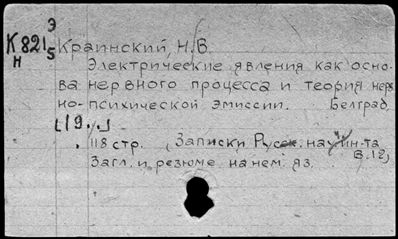 Э
К 821 Краинский, Н.В.
Н 5
Электрические явления как осно-
ва нервного процесса и теория нерв
но-психической эмиссии. Белград,
[19..]
118 стр. (Записки Русск. науч. ин-та
В.12)
Загл. и резюме на нем. яз.